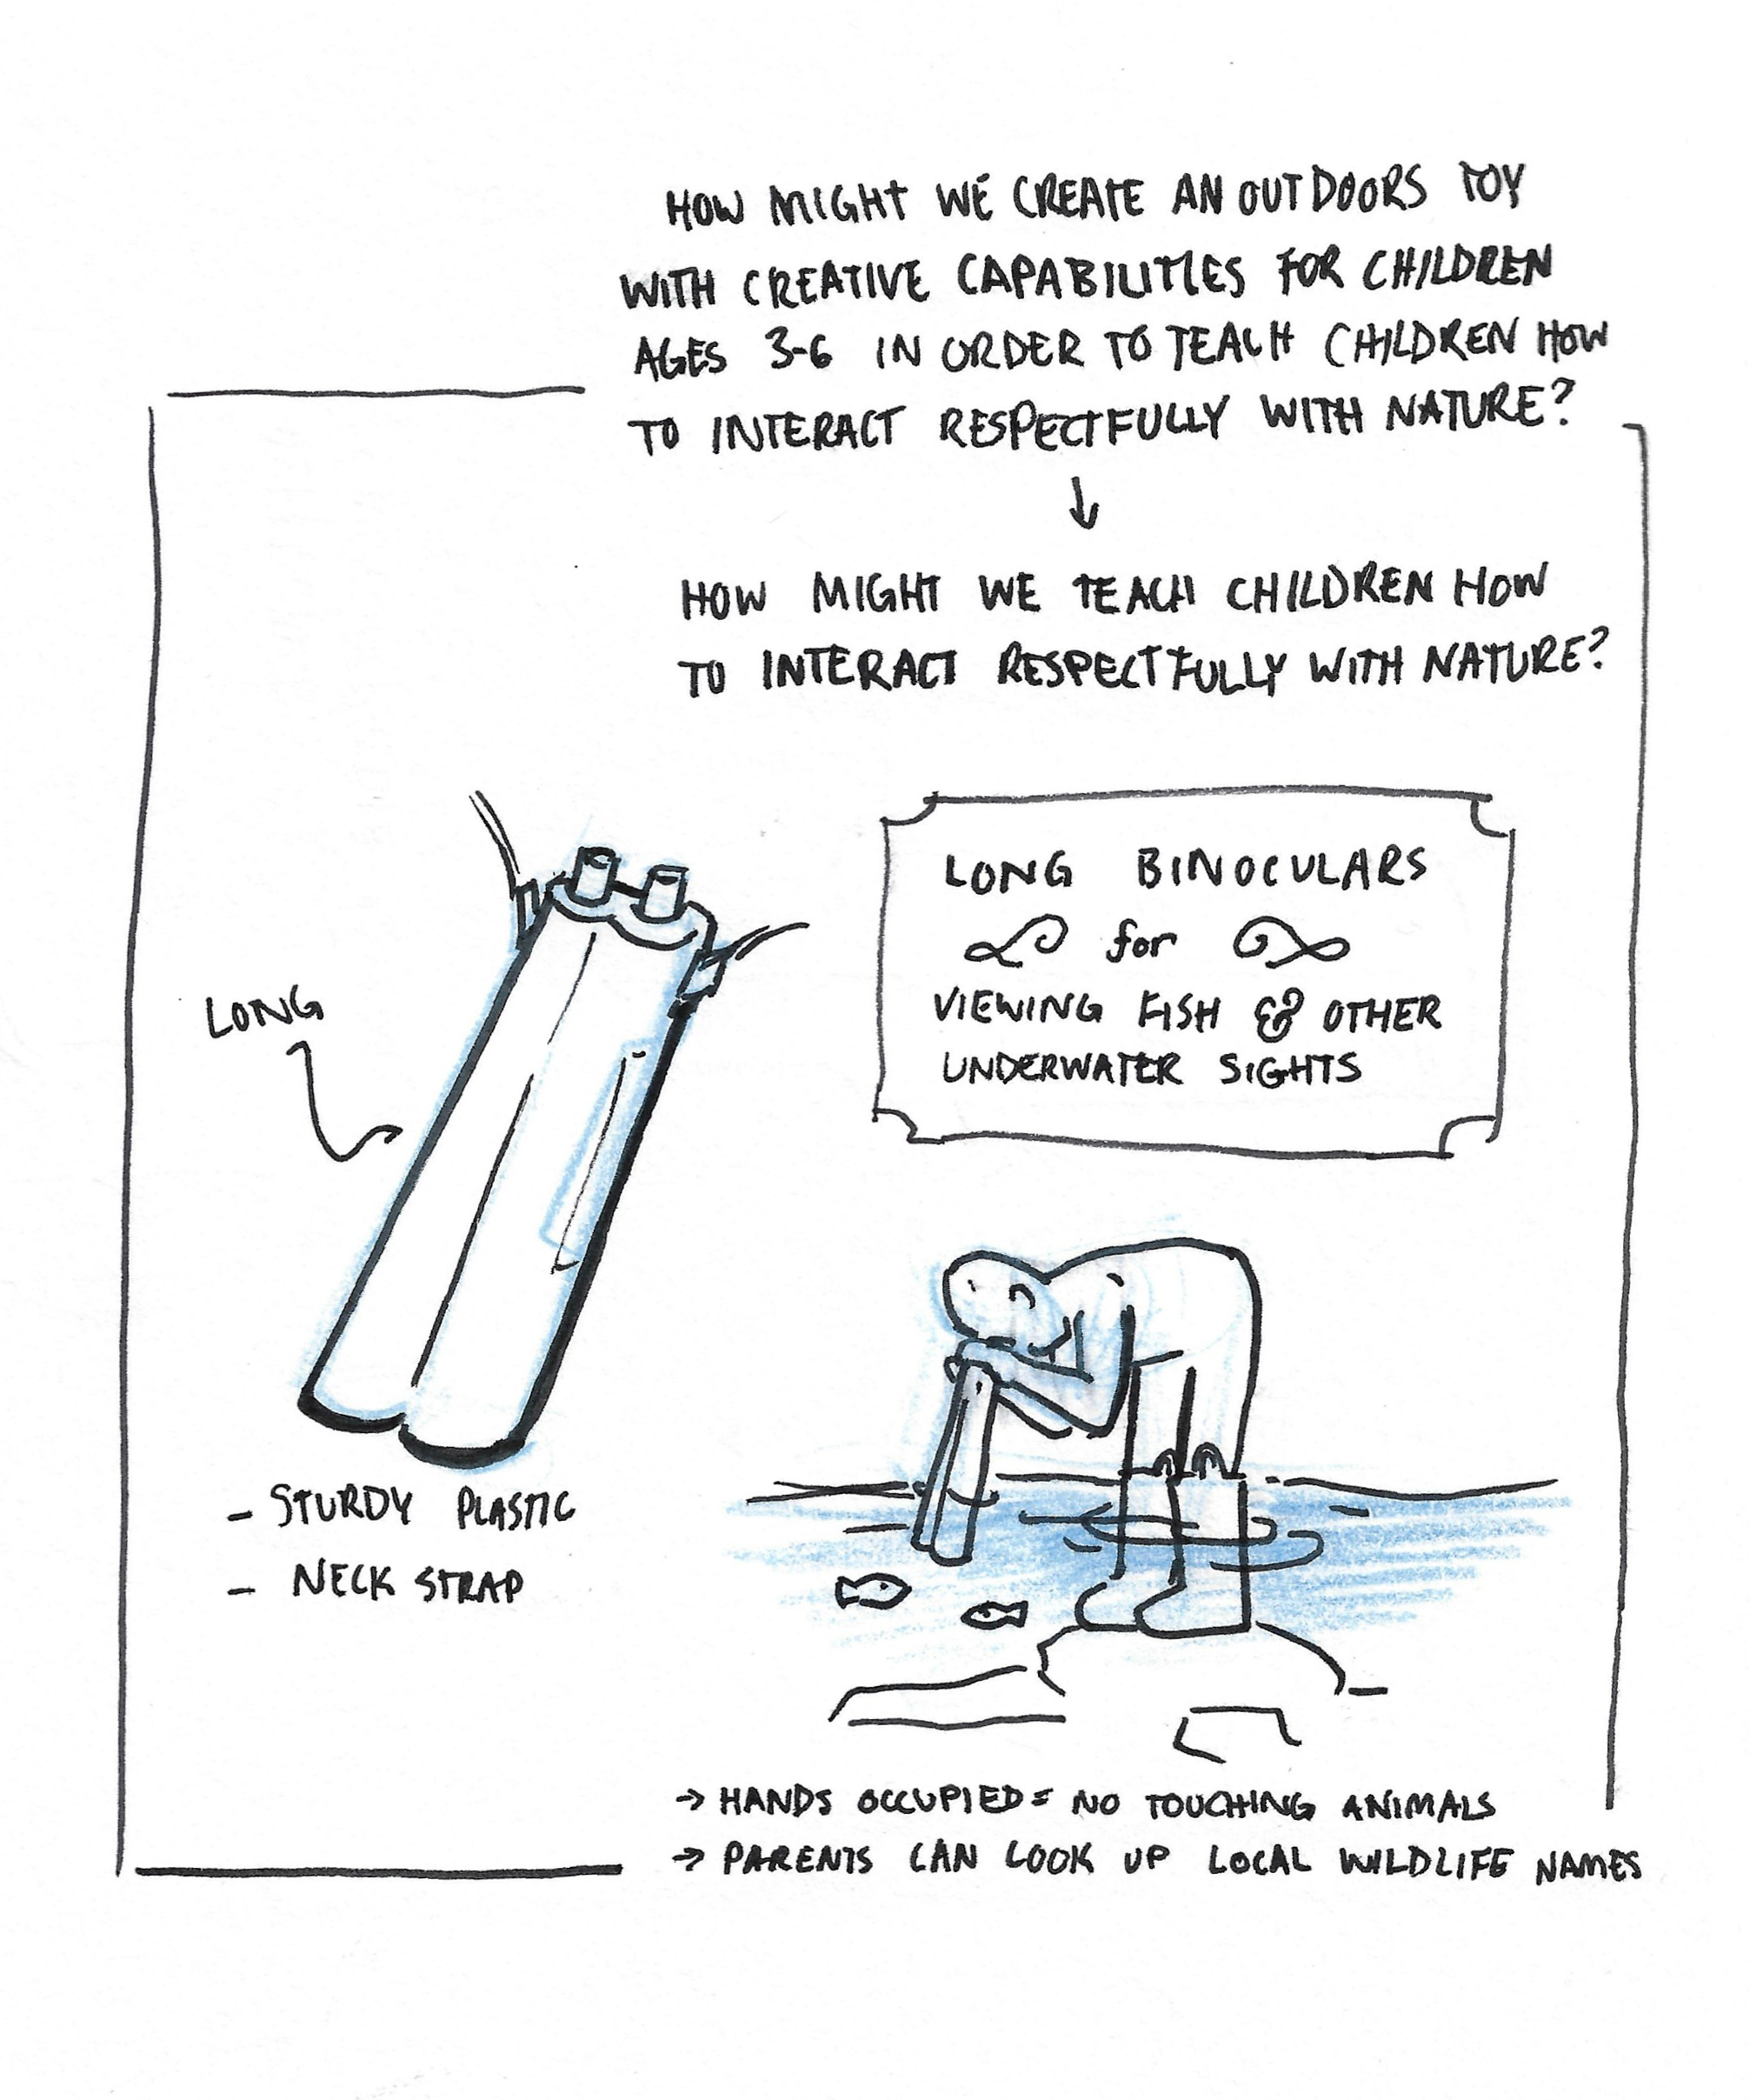 HOW MIGHT WE CREATE AN OUTDOORS TOY
WITH CREATIVE CAPABILITIES FOR CHILDREN
AGES 3-6 IN ORDER TO TEACH CHILDREN HOW
TO INTERACT RESPECTFULLY WITH NATURE?
↓
HOW MIGHT WE TEACH CHILDREN HOW
TO INTERACT RESPECTFULLY WITH NATURE?
LONG BINOCULARS
for
VIEWING FISH & OTHER
UNDERWATER SIGHTS
LONG
- STURDY PLASTIC
- NECK STRAP
→ HANDS OCCUPIED = NO TOUCHING ANIMALS
→ PARENTS CAN LOOK UP LOCAL WILDLIFE NAMES